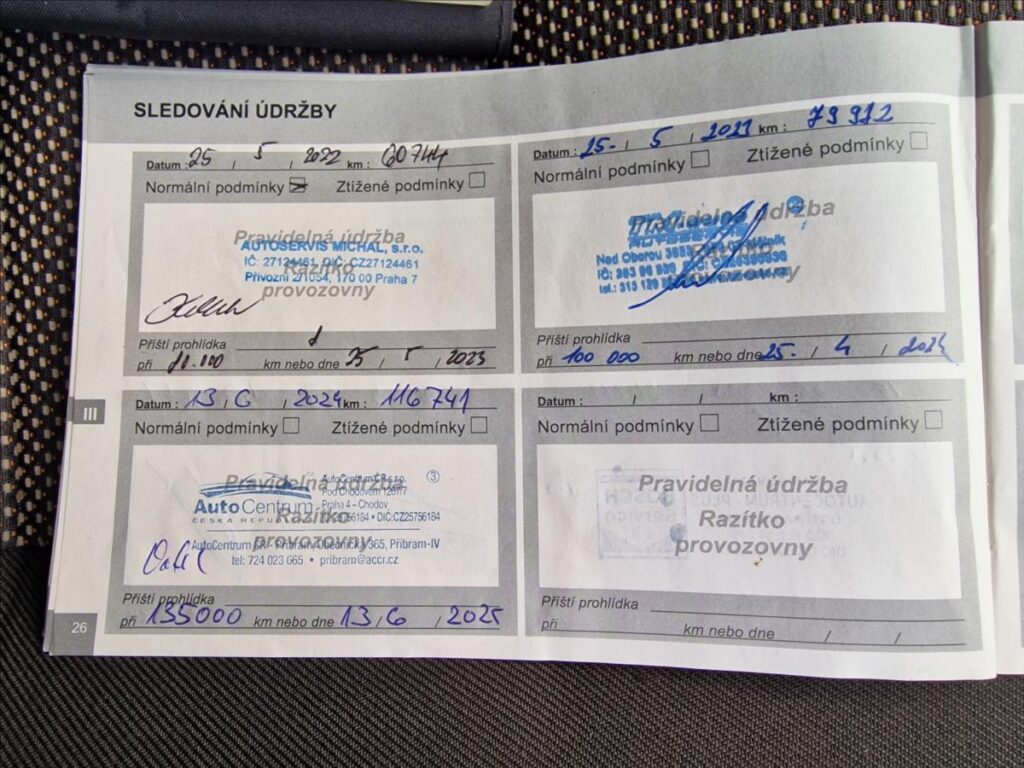 SLEDOVÁNÍ ÚDRŽBY
Datum : 25 / 5 / 2022 km : 60744
Normální podmínky Ztížené podmínky
Pravidelná údržba
Razítko
provozovny
AUTOSERVIS MICHAL, s.r.o.
IČ: 27124461, DIČ: CZ27124461
Přívozní 2/1054, 170 00 Praha 7
Příští prohlídka
při km nebo dne 25 / 5 / 2023
Datum : 25. / 5 / 2023 km : 79 912
Normální podmínky Ztížené podmínky
Pravidelná údržba
Razítko
provozovny
Ned Oborou
IČ: 303 96 tel.: 313
Příští prohlídka
při 100 000 km nebo dne 25. / 4 / 2024
III
Datum : 13 / 6 / 2024 km : 116 741
Normální podmínky Ztížené podmínky
Pravidelná údržba
Razítko
provozovny
AutoCentrum ČR s.r.o. 3
Pod Chodovem 126/7
Praha 4 – Chodov
• DIČ:CZ25756184
AutoCentrum
ČESKÁ REPUBLIKA
AutoCentrum ČR - Příbram, Obecnická 365, Příbram-IV
tel: 724 023 665 • pribram@accr.cz
Příští prohlídka
při 135000 km nebo dne 13 / 6 / 2025
Datum : / / km :
Normální podmínky Ztížené podmínky
Pravidelná údržba
Razítko
provozovny
Příští prohlídka
při km nebo dne / /
26